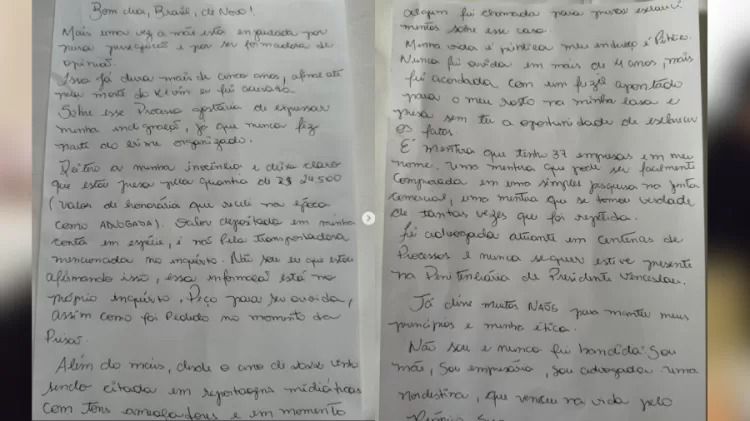 Bom dia, Brasil, de Novo!
Mais uma vez a mãe está enjaulada por
pura perseguição e por ser formadora de
opinião.
Isso já dura mais de cinco anos, afinal até
pela morte do Kevin eu fui acusada.
Sobre esse Processo gostaria de expressar
minha indignação, já que nunca fiz
parte do crime organizado.
Reitero a minha inocência e deixo claro
que estou presa pela quantia de R$ 24.500
(valor de honorários que recebi na época
como ADVOGADA). Valor depositado em minha
conta em espécie, e não pela transportadora
mencionada no inquérito. Não sou eu que estou
afirmando isso, essa informação está no
próprio inquérito. Peço para ser ouvida,
assim como foi Pedido no momento da
Prisão.
Além do mais, desde o ano de venho
sendo citada em reportagens midiáticas
com tons ameaçadores e em momento
algum fui chamada para prestar esclareci
mentos sobre esse caso.
Minha vida é pública meu endereço é Público.
Nunca fui ouvida em mais de 4 anos, mas
fui acordada com um fuzil apontado
para o meu rosto na minha casa e
presa sem ter a oportunidade de esclarecer
os fatos.
É mentira que tenho 37 empresas em meu
nome. Uma mentira que pode ser facilmente
comprovada em uma simples pesquisa na junta
comercial, uma mentira que se tornou verdade
de tantas vezes que foi repetida.
Fui advogada atuante em centenas de
Processos e nunca sequer estive presente
na Penitenciária de Presidente Venceslau.
Já disse muitos NÃOS para manter meus
princípios e minha ética.
Não sou e nunca fui bandida. Sou
mãe, sou empresária, sou advogada uma
nordestina, que venceu na vida pelo